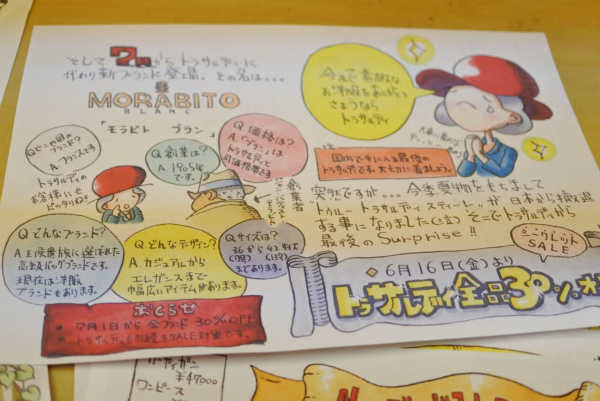 そして7月からトラサルディに
代わり新ブランド登場。その名は...
MORABITO
BLANC
「モラビト ブラン」
Q どこの国のブランド?
A. フランスです
トラサルディの
お客様にも
ピッタリね!!
Q 創業は?
A. 1905年
です。
Q 価格は?
A.「ブラン」は
トラサルディと
同価格帯です
創業者
Q どんなブランド?
A 王侯貴族に選ばれた
高級バッグブランドです。
現在は洋服
ブランドもあります。
Q どんなデザイン?
A. カジュアルから
エレガンスまで
巾広いアイテムがあります。
Q サイズは?
36から42サイズ
(7号) (13号)
まであります。
おしらせ
• 7月1日から全ブランド30%OFF
• トラサルディも引続きSALE対象です。
今まで素敵な
お洋服をありがとう
さようなら
トラサルディ
国内で手に入る最後の
トラサルディです。大切に着ましょう。
突然ですが...今季夏物をもちまして
"トゥルートラサルディスティーレ"が日本から撤退
する事になりました(泣) そこでトラサルディから
最後のSurprise!!
シークレット
SALE
◆6月16日(金)より
トラサルディ全品30%オ
¥47,000
ワンピース